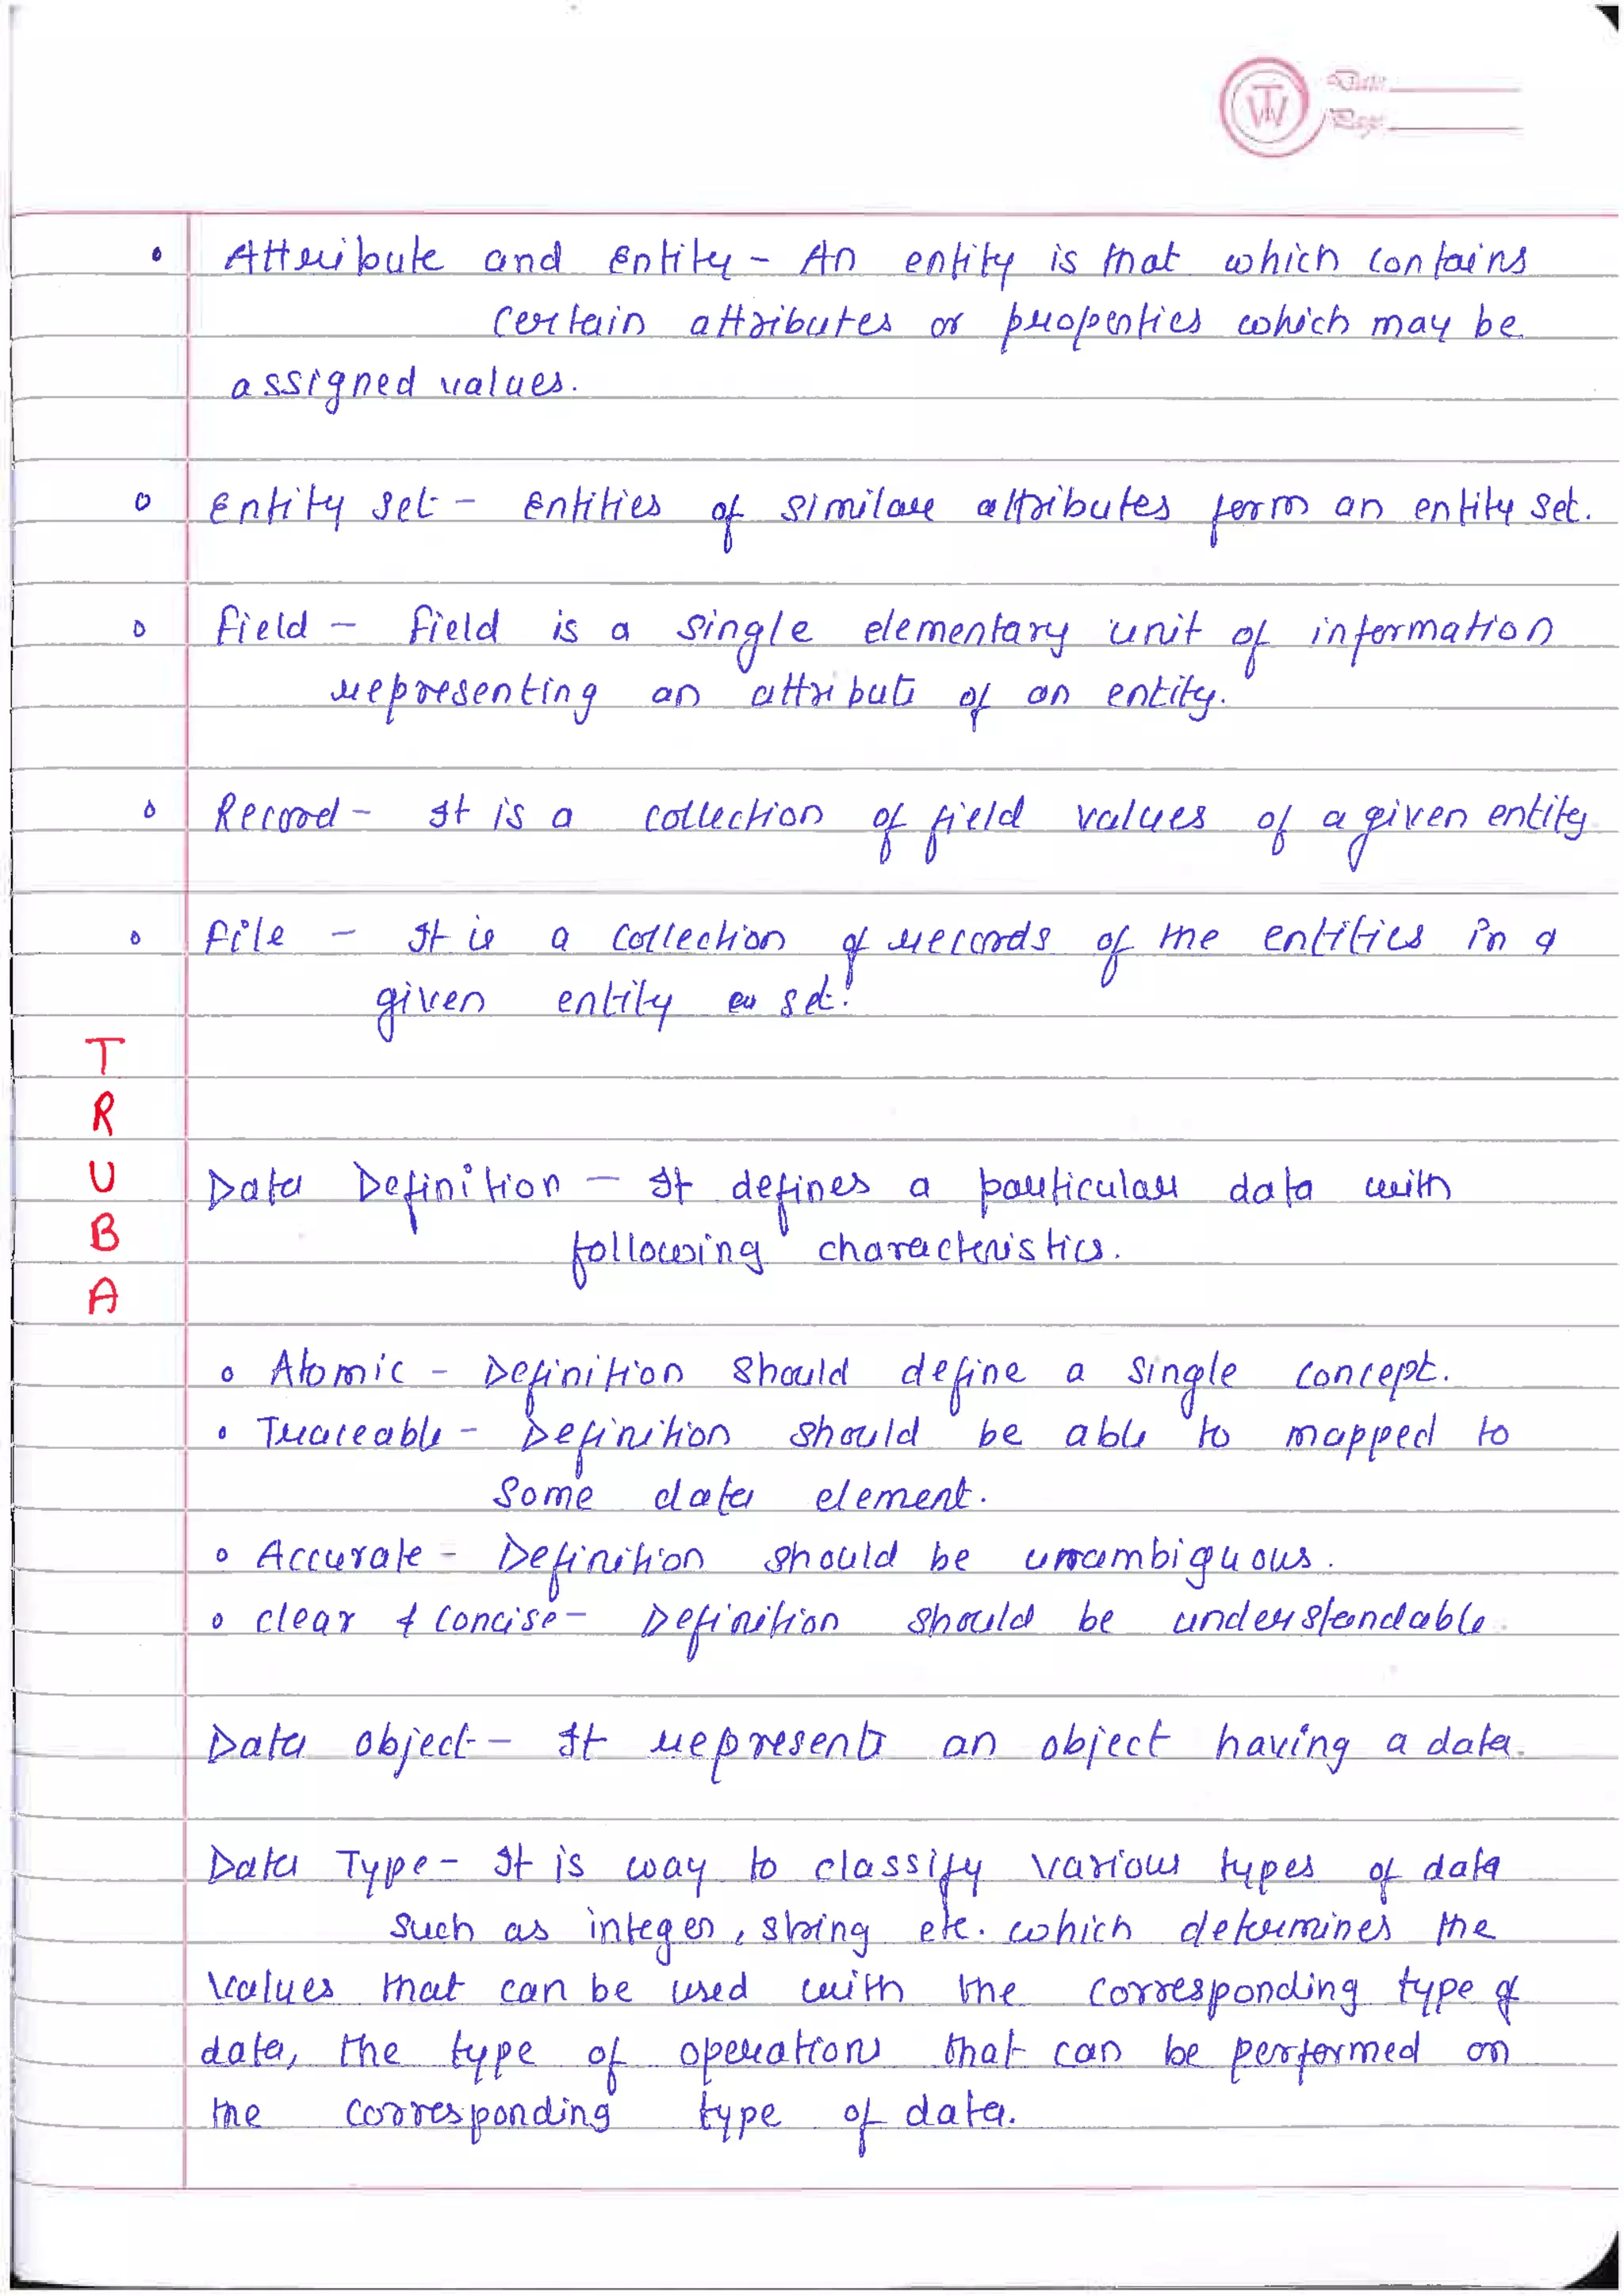 Date
Page
• Attribute and Entity - An entity is that which contains
certain attributes or properties which may be
assigned values.
• Entity Set - Entities of similar attributes form an entity set.
• Field - Field is a single elementary unit of information
representing an attribute of an entity.
• Record - It is a collection of field values of a given entity
• File - It is a collection of records of the entities in a
given entity set.
T
R
U
B
A
Data Definition - It defines a particular data with
following characteristics.
• Atomic - Definition should define a single concept.
• Traceable - Definition should be able to mapped to
some data element.
• Accurate - Definition should be unambiguous.
• clear & Concise - Definition should be understandable.
Data object - It represents an object having a data.
Data Type - It is way to classify various types of data
such as integer, string etc. which determines the
values that can be used with the corresponding type of
data, the type of operations that can be performed on
the corresponding type of data.